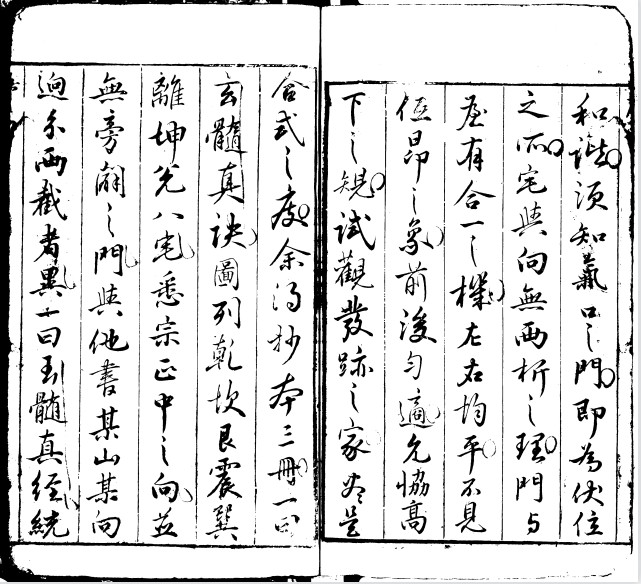 和諧須知氣口之門即為伏位
之所宅與向無兩析之理門与
屋有合一之機左右均平不見
低昂之象前後勻適允恊高
下之規試觀發跡之家盡是
合式之度余得抄本三冊一曰
玄髓真訣圖列乾坎艮震巽
離坤兌八宅悉宗正中之向並
無旁闢之門與他書某山某向
迥乎兩截者異一曰玉髓真經統